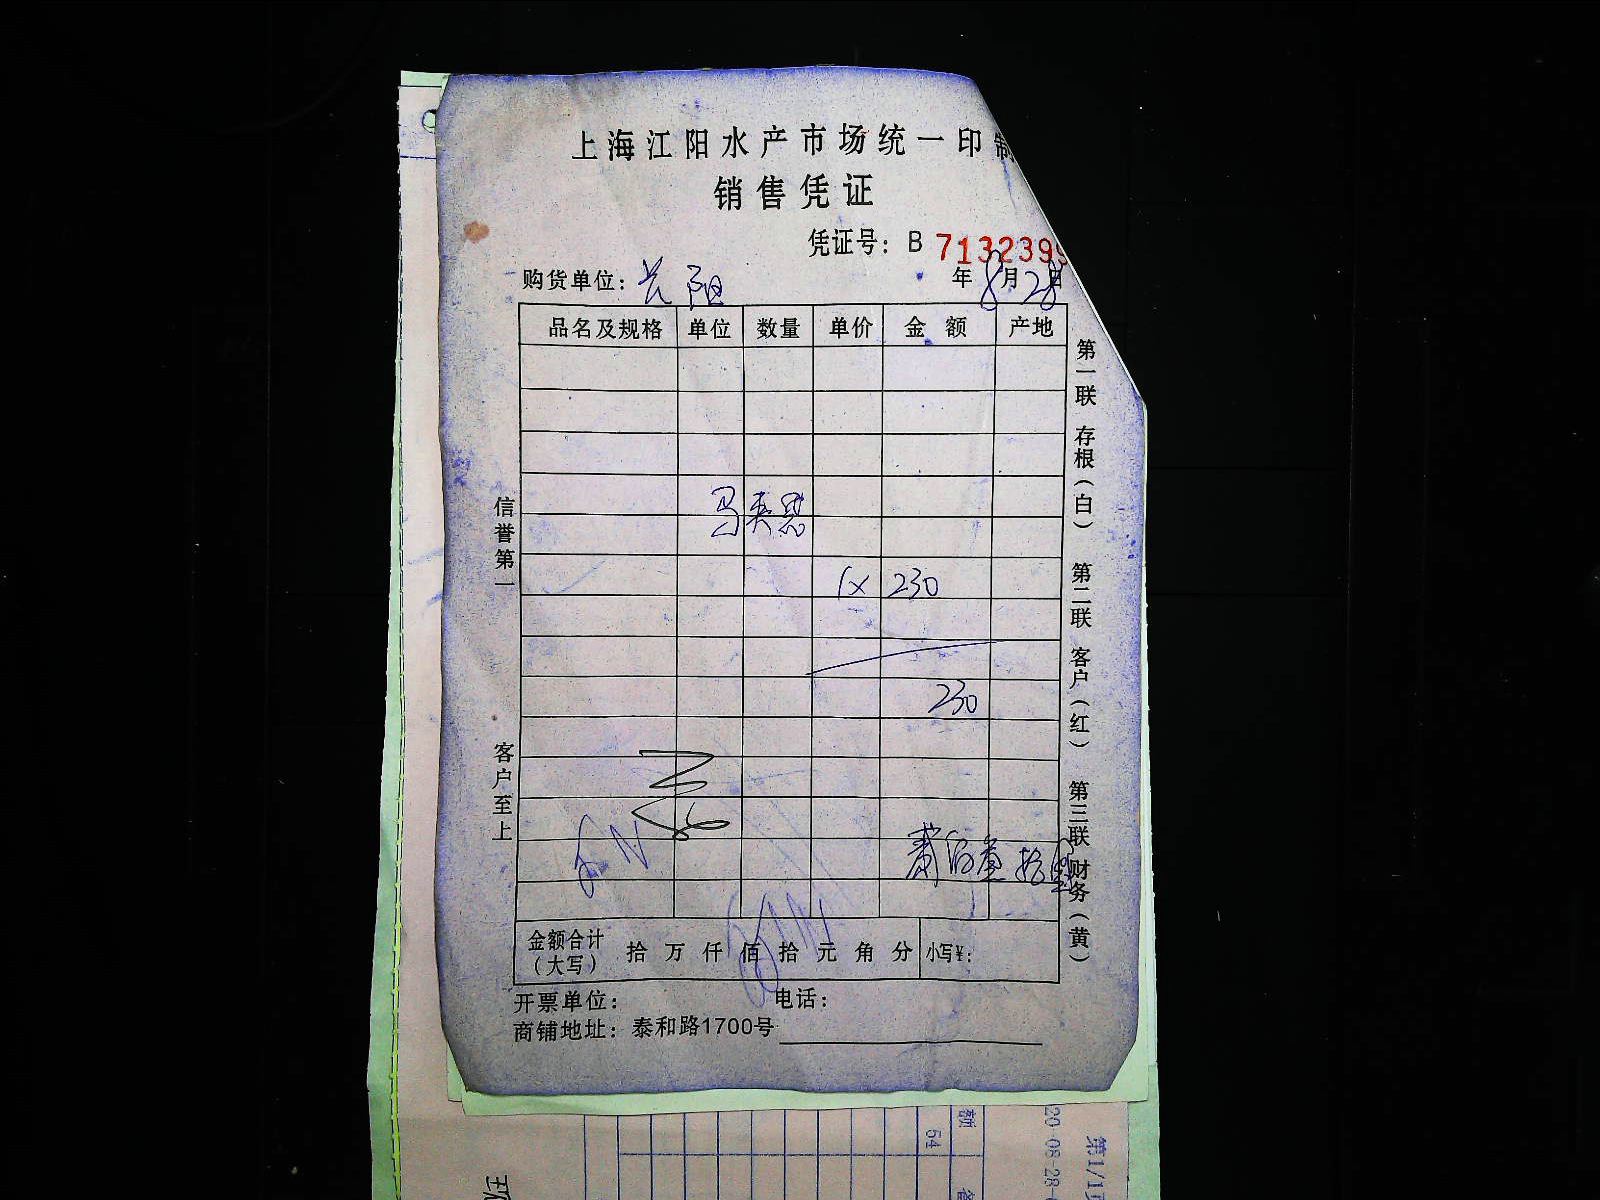 上海江阳水产市场统一印制
销售凭证
凭证号：B 7132399
购货单位：长阳 年8月28日
品名及规格 单位 数量 单价 金额 产地
1x 230
230
金额合计（大写） 拾 万 仟 佰 拾 元 角 分 小写¥：
开票单位： 电话：
商铺地址：泰和路1700号
信誉第一 客户至上
第一联 存根（白） 第二联 客户（红） 第三联 财务（黄）
额
54
20-08-28-
第1/1页